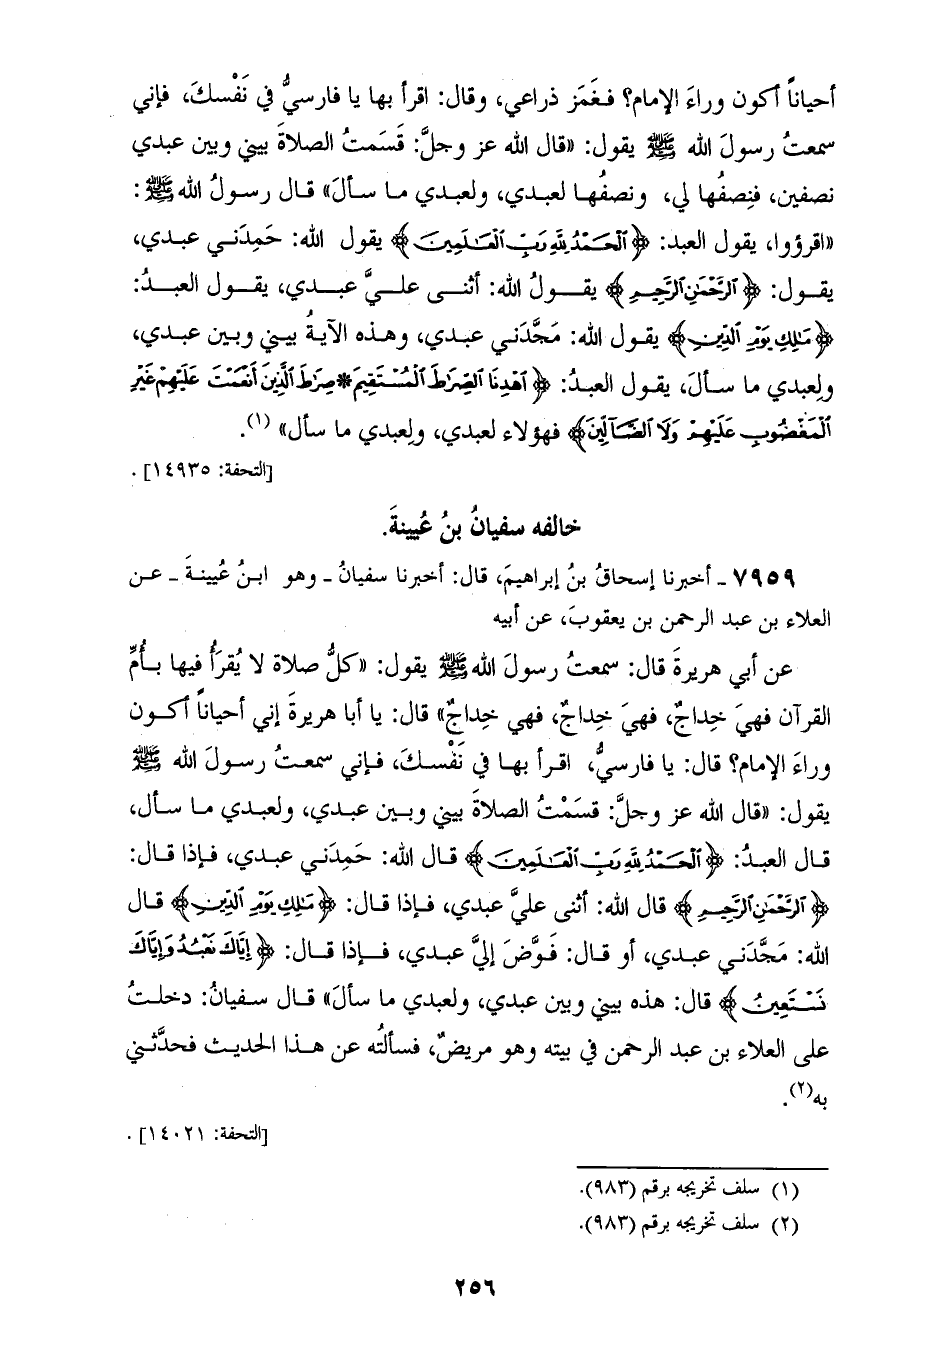 أحياناً أكون وراءَ الإمام؟ فغَمَز ذراعي، وقال: اقرأ بها يا فارسيُّ في نَفْسكَ، فإني
سمعتُ رسولَ الله ﷺ يقول: «قال الله عز وجلَّ: قَسَمتُ الصلاةَ بيني وبين عبدي
نصفين، فنِصفُها لي، ونصفُها لعبدي، ولعبدي ما سألَ» قال رسولُ الله ﷺ:
«اقرؤوا، يقول العبد: ﴿ٱلْحَمْدُ لِلَّهِ رَبِّ ٱلْعَـٰلَمِينَ﴾ يقول الله: حَمِدَني عبدي،
يقول: ﴿ٱلرَّحْمَـٰنِ ٱلرَّحِيمِ﴾ يقولُ الله: أثنى عليَّ عبدي، يقول العبدُ:
﴿مَـٰلِكِ يَوْمِ ٱلدِّينِ﴾ يقول الله: مَجَّدَني عبدي، وهذه الآيةُ بيني وبين عبدي،
ولِعبدي ما سألَ، يقول العبدُ: ﴿ٱهْدِنَا ٱلصِّرَٰطَ ٱلْمُسْتَقِيمَ * صِرَٰطَ ٱلَّذِينَ أَنْعَمْتَ عَلَيْهِمْ غَيْرِ
ٱلْمَغْضُوبِ عَلَيْهِمْ وَلَا ٱلضَّآلِّينَ﴾ فهؤلاء لعبدي، ولِعبدي ما سأل» (١).
[التحفة: ١٤٩٣٥].
خالفه سفيانُ بنُ عُيينةَ.
٧٩٥٩ ـ أخبرنا إسحاقُ بنُ إبراهيمَ، قال: أخبرنا سفيانُ ـ وهو ابنُ عُيينةَ ـ عن
العلاء بن عبد الرحمن بن يعقوبَ، عن أبيه
عن أبي هريرةَ قال: سمعتُ رسولَ الله ﷺ يقول: «كلُّ صلاة لا يُقرَأُ فيها بأُمِّ
القرآن فهيَ خِداجٌ، فهيَ خِداجٌ، فهي خِداجٌ» قال: يا أبا هريرةَ إني أحياناً أكون
وراءَ الإمام؟ قال: يا فارسيُّ، اقرأ بها في نَفْسكَ، فإني سمعتُ رسولَ الله ﷺ
يقول: «قال الله عز وجلَّ: قسَمْتُ الصلاةَ بيني وبين عبدي، ولعبدي ما سأل،
قال العبدُ: ﴿ٱلْحَمْدُ لِلَّهِ رَبِّ ٱلْعَـٰلَمِينَ﴾ قال الله: حَمِدَني عبدي، فإذا قال:
﴿ٱلرَّحْمَـٰنِ ٱلرَّحِيمِ﴾ قال الله: أثنى عليَّ عبدي، فإذا قال: ﴿مَـٰلِكِ يَوْمِ ٱلدِّينِ﴾ قال
الله: مَجَّدَني عبدي، أو قال: فَوَّضَ إليَّ عبدي، فإذا قال: ﴿إِيَّاكَ نَعْبُدُ وَإِيَّاكَ
نَسْتَعِينُ﴾ قال: هذه بيني وبين عبدي، ولعبدي ما سألَ» قال سفيانُ: دخلتُ
على العلاء بن عبد الرحمن في بيته وهو مريضٌ، فسألتُه عن هذا الحديث فحدَّثني
به(٢).
[التحفة: ١٤٠٢١].
(١) سلف تخريجه برقم (٩٨٣).
(٢) سلف تخريجه برقم (٩٨٣).
٢٥٦